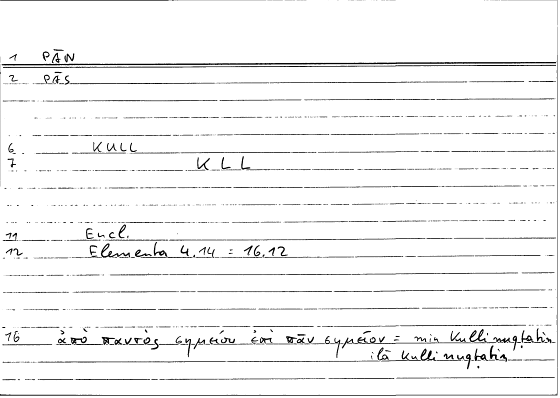 1 PĀN
2 PĀS
6 KULL
7 KLL
11 Eucl.
12 Elementa 4.14 = 16.12
16 ἀπὸ παντὸς σημείου ἐπὶ πᾶν σημεῖον = min kulli nuqṭatin
ilā kulli nuqṭatin